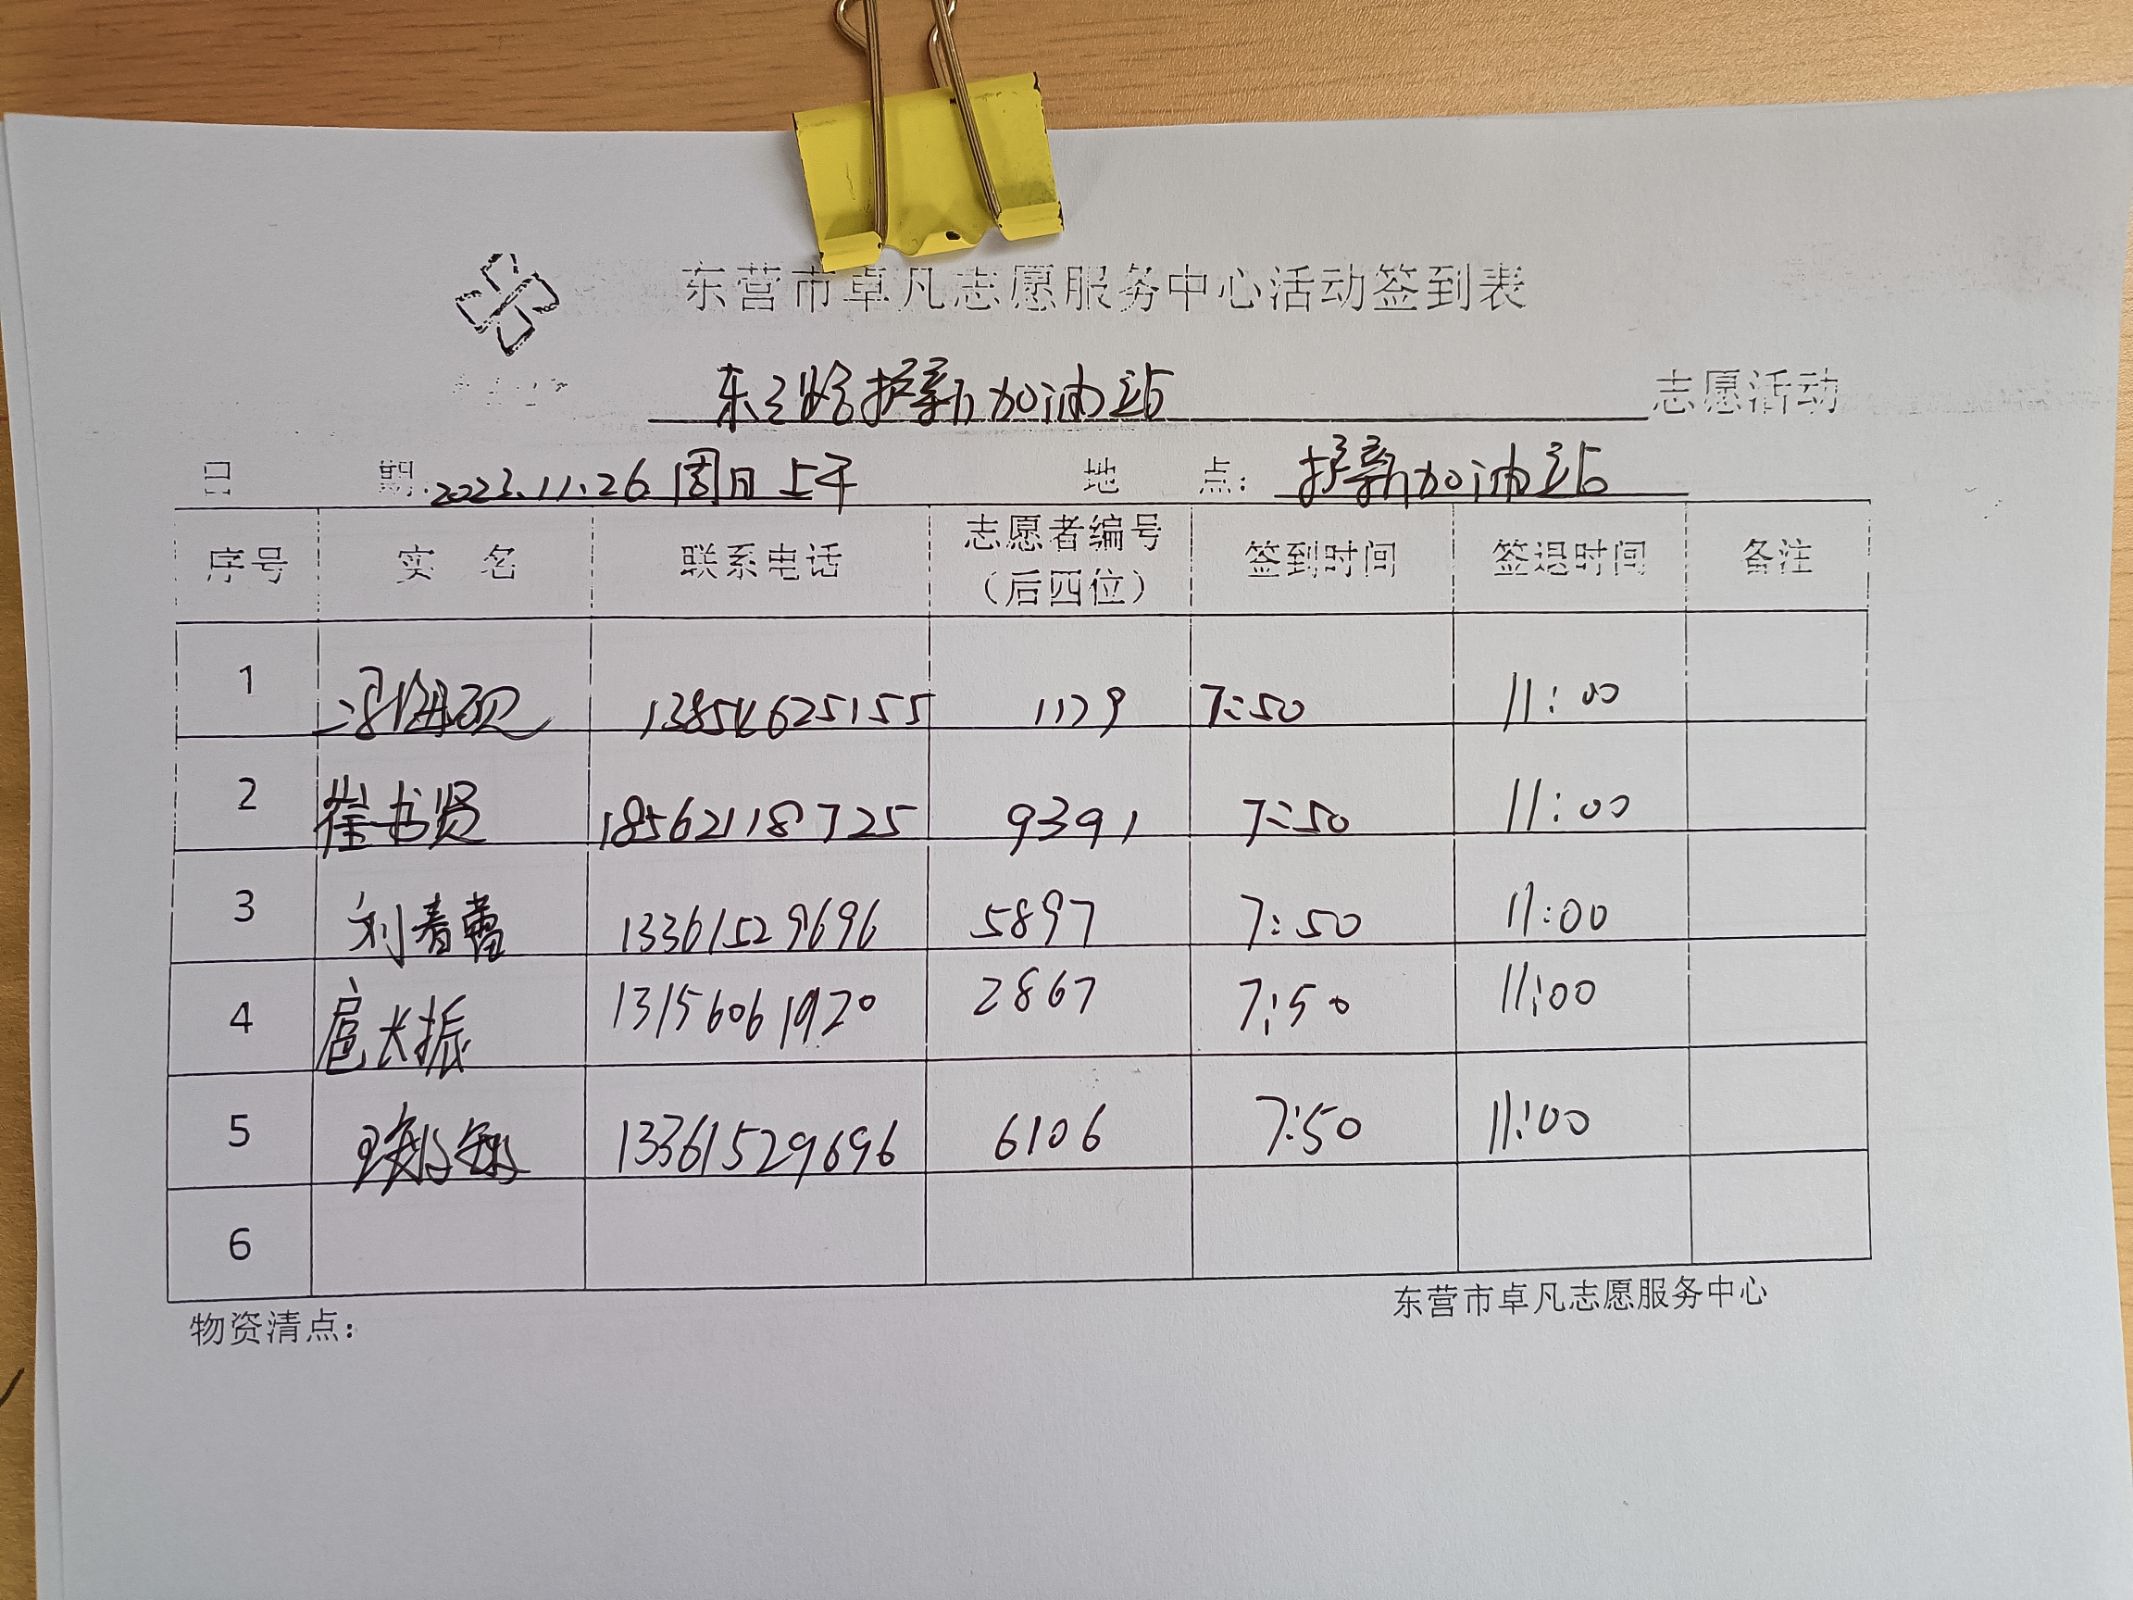 东营市卓凡志愿服务中心活动签到表
东三路护新加油站 志愿活动
日 期:2023.11.26 周日上午 地 点: 护新加油站
序号 实 名 联系电话 志愿者编号（后四位） 签到时间 签退时间 备注
1 13854625155 1129 7:50 11:00
2 崔书贤 18562118725 9391 7:50 11:00
3 刘春蕾 13361529696 5897 7:50 11:00
4 扈长振 13156061920 2867 7:50 11:00
5 13361529696 6106 7:50 11:00
6
物资清点: 东营市卓凡志愿服务中心